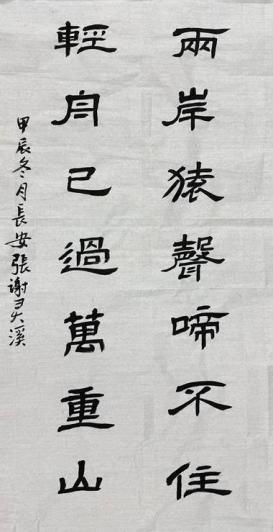 兩岸猿聲啼不住
輕舟已過萬重山
甲辰冬月長安張謝